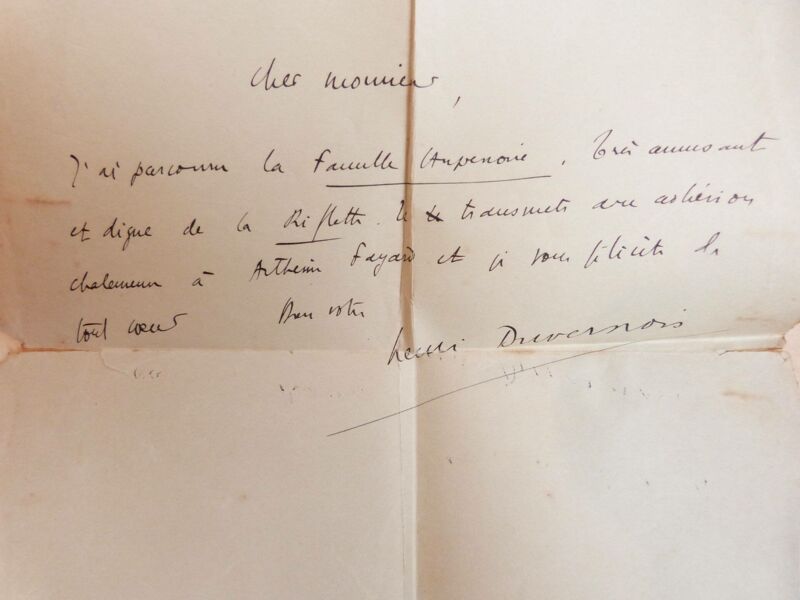 Cher monsieur,
J'ai parcouru la Famille . Très amusant
et digne de la Riflette. Je transmets avec adhésion
chaleureuse à Arthème Fayard et je vous félicite de
tout cœur Bien votre
Henri Duvernois